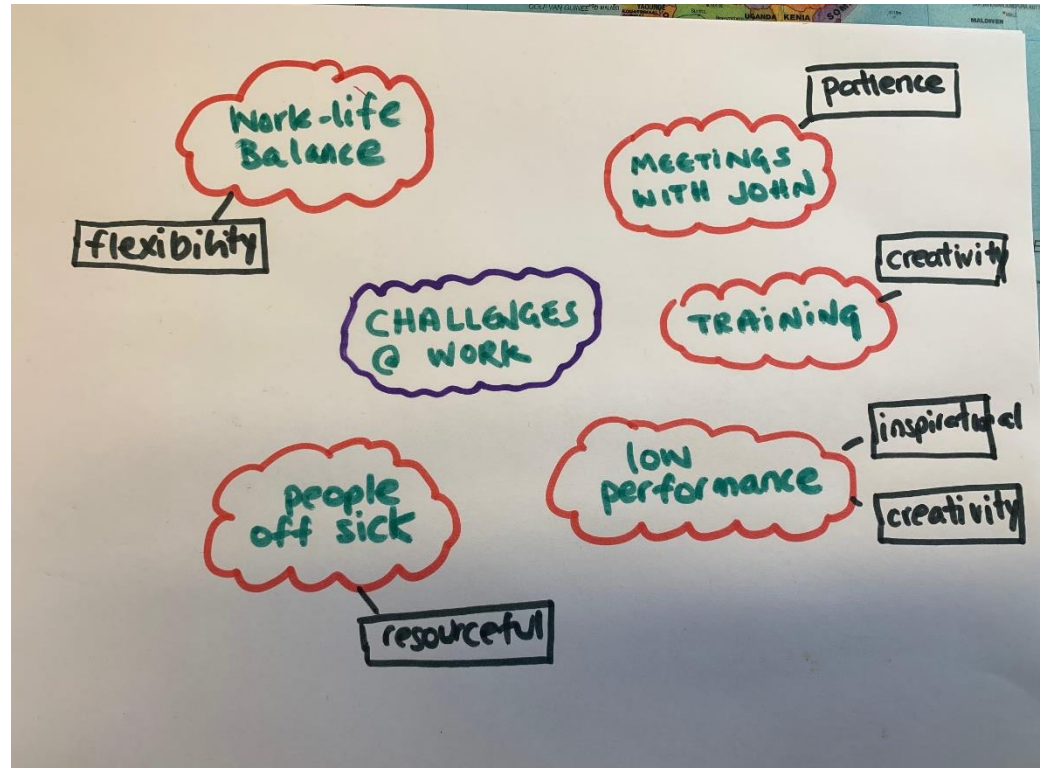 UGANDA KENIA
MALDIVEN
Work-life
Balance
flexibility
patience
MEETINGS
WITH JOHN
creativity
TRAINING
CHALLENGES
@ WORK
inspirational
low
performance
creativity
people
off sick
resourceful